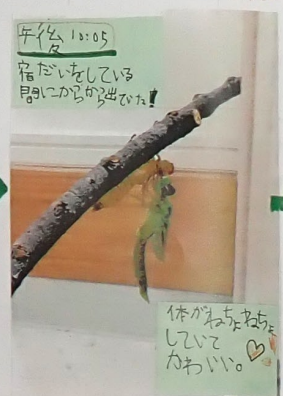 午後 10:05
宿だいをしている
間にからから出ていた!
体がねちょねちょ
していて
かわいい。